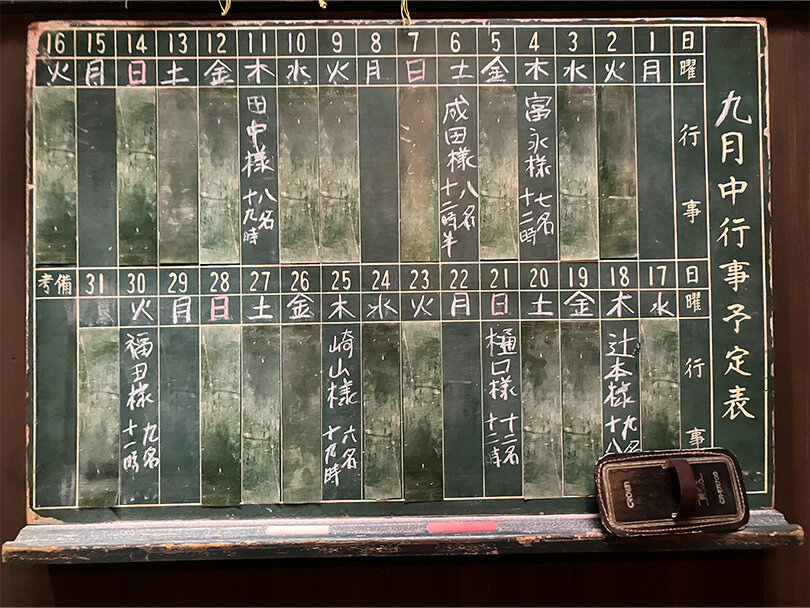 九月中行事予定表
日 曜 行事
1 月
2 火
3 水
4 木 富永様 七名 十二時
5 金
6 土 成田様 八名 十二時半
7 日
8 月
9 火
10 水
11 木 田中様 八名 十九時
12 金
13 土
14 日
15 月
16 火
日 曜 行事
17 水
18 木 辻本様 九名 十八
19 金
20 土
21 日 樋口様 十二名 十二時
22 月
23 火
24 水
25 木 崎山様 六名 十九時
26 金
27 土
28 日
29 月
30 火 福田様 九名 十一時
31
備考
CROWN